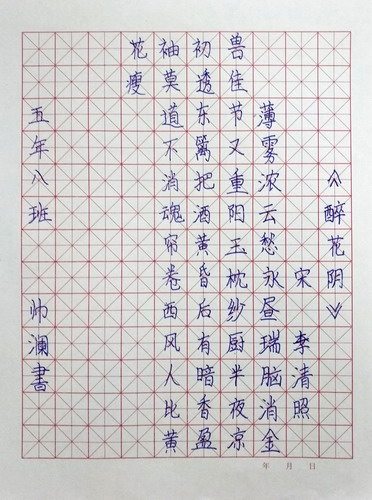 《醉花阴》
宋 李清照
薄雾浓云愁永昼瑞脑消金
兽佳节又重阳玉枕纱厨半夜凉
初透东篱把酒黄昏后有暗香盈
袖莫道不消魂帘卷西风人比黄
花瘦
五年八班 帅澜書
年 月 日